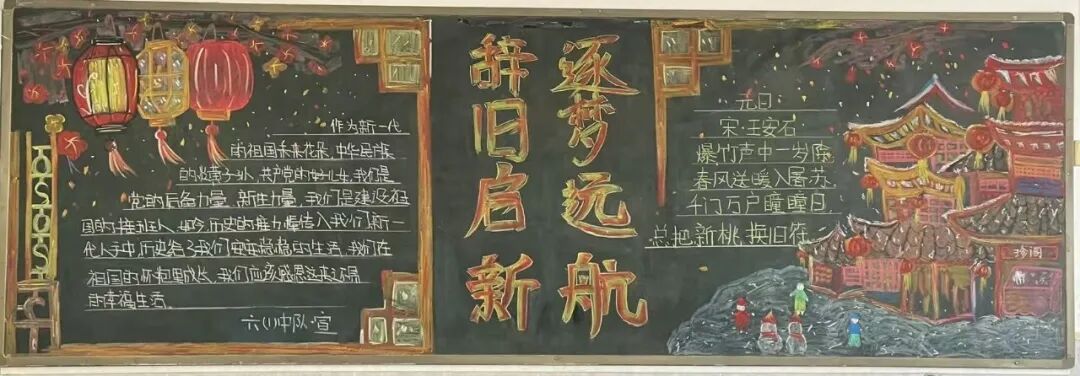 作为新一代
的祖国未来花朵,中华民族
的炎黄子孙,共产党的好儿生,我们是
党的后备力量,新生力量,我们是建设祖
国的接班人,如今,历史的接力棒传入我们新一
代人手中,历史给了我们安定的生活,我们在
祖国的怀抱里成长,我们应该感恩这来之不易
的幸福生活。
六(1)中队·宣
辞旧启新
逐梦远航
元日
宋·王安石
爆竹声中一岁除
春风送暖入屠苏.
千门万户瞳瞳日
总把新桃,换旧符